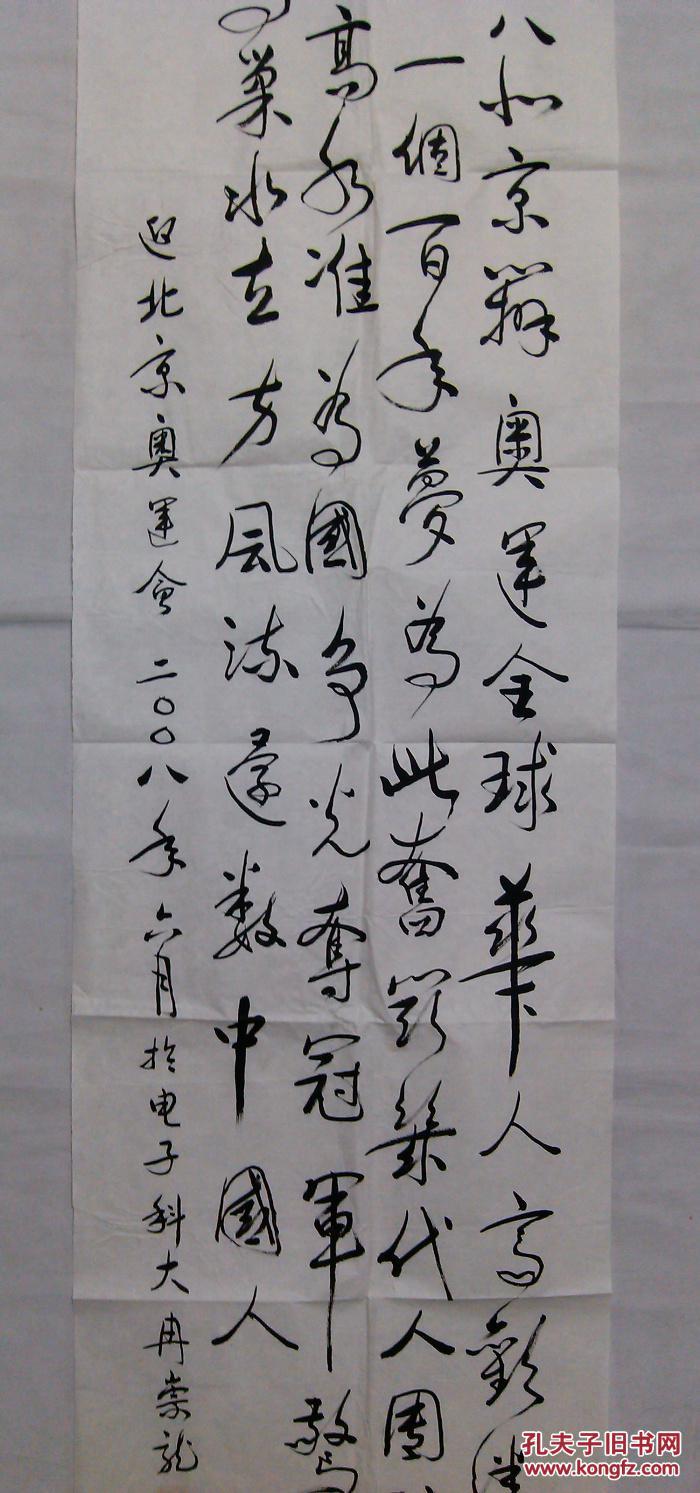 八北京辦奧運全球華人高歡
一個百年夢為此奮鬥幾代人團
高水准為國争光奪冠軍驚
巢水立方風流還數中國人
迎北京奧運會 二〇〇八年六月於电子科大冉崇龍
孔夫子旧书网
www.kongfz.com